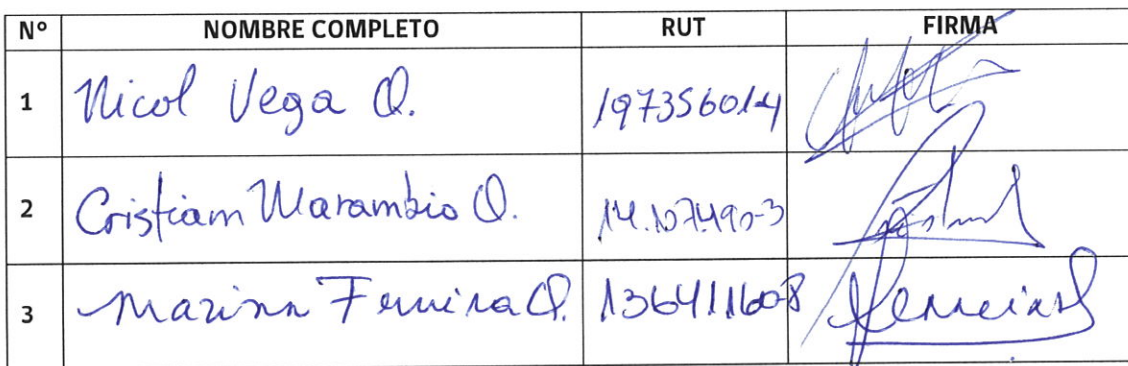 N° NOMBRE COMPLETO RUT FIRMA
1 Nicol Vega Q. 19735601-4
2 Cristiam Marambio Q. 14.107.490-3
3 Marina Ferreira Q. 13641160-8